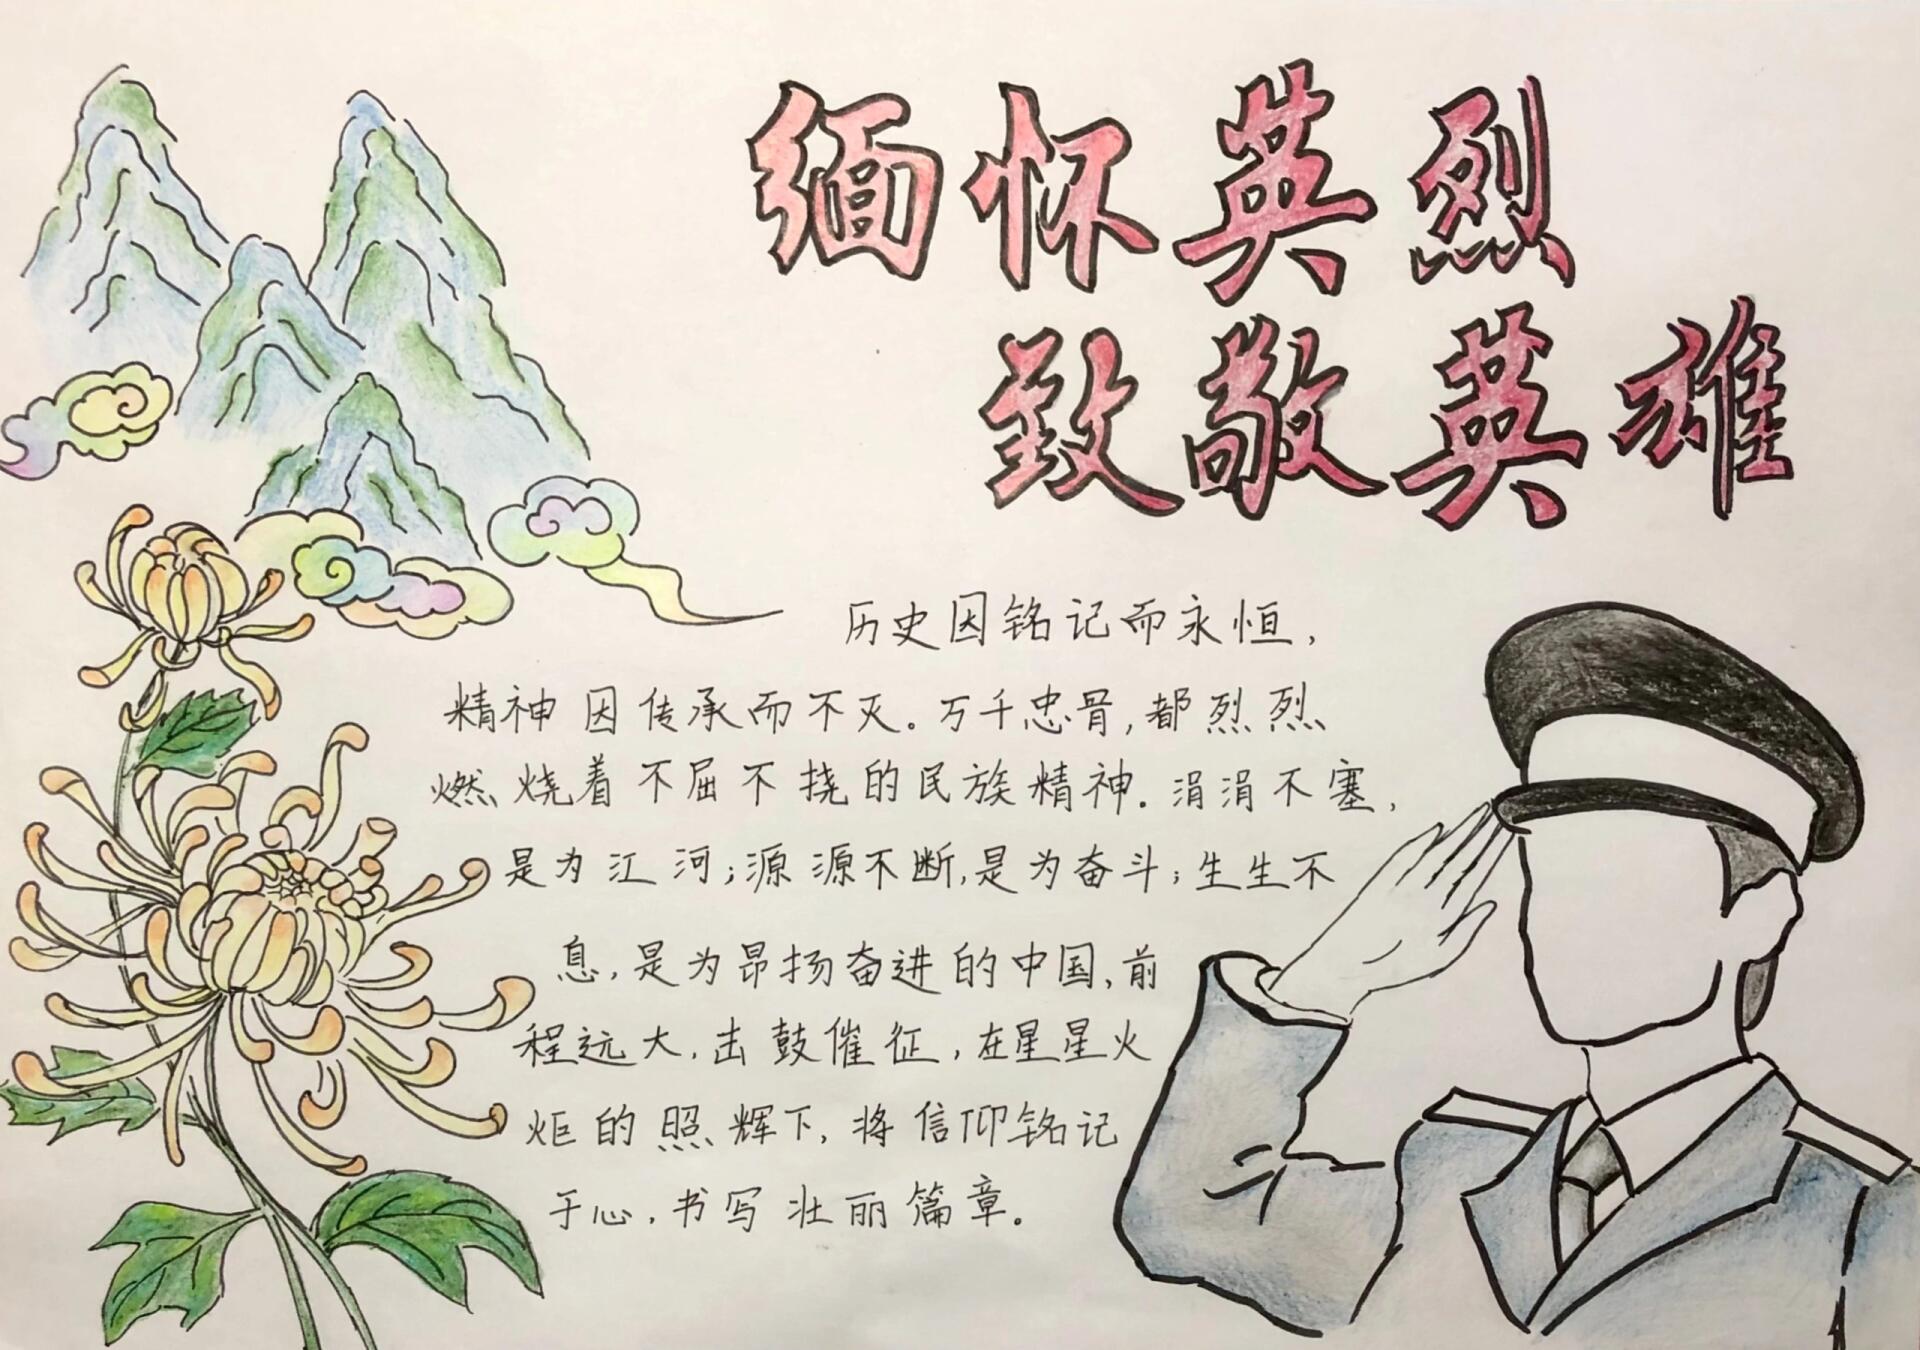 缅怀英烈
致敬英雄
历史因铭记而永恒，
精神因传承而不灭。万千忠骨，都烈烈
燃烧着不屈不挠的民族精神。涓涓不塞，
是为江河；源源不断，是为奋斗；生生不
息，是为昂扬奋进的中国，前
程远大，击鼓催征，在星星火
炬的照辉下，将信仰铭记
于心，书写壮丽篇章。